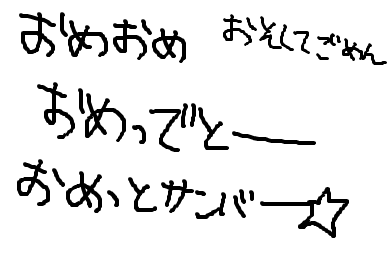 おめおめ おそくてごめん
おめっでとー
おめっとサンバー☆